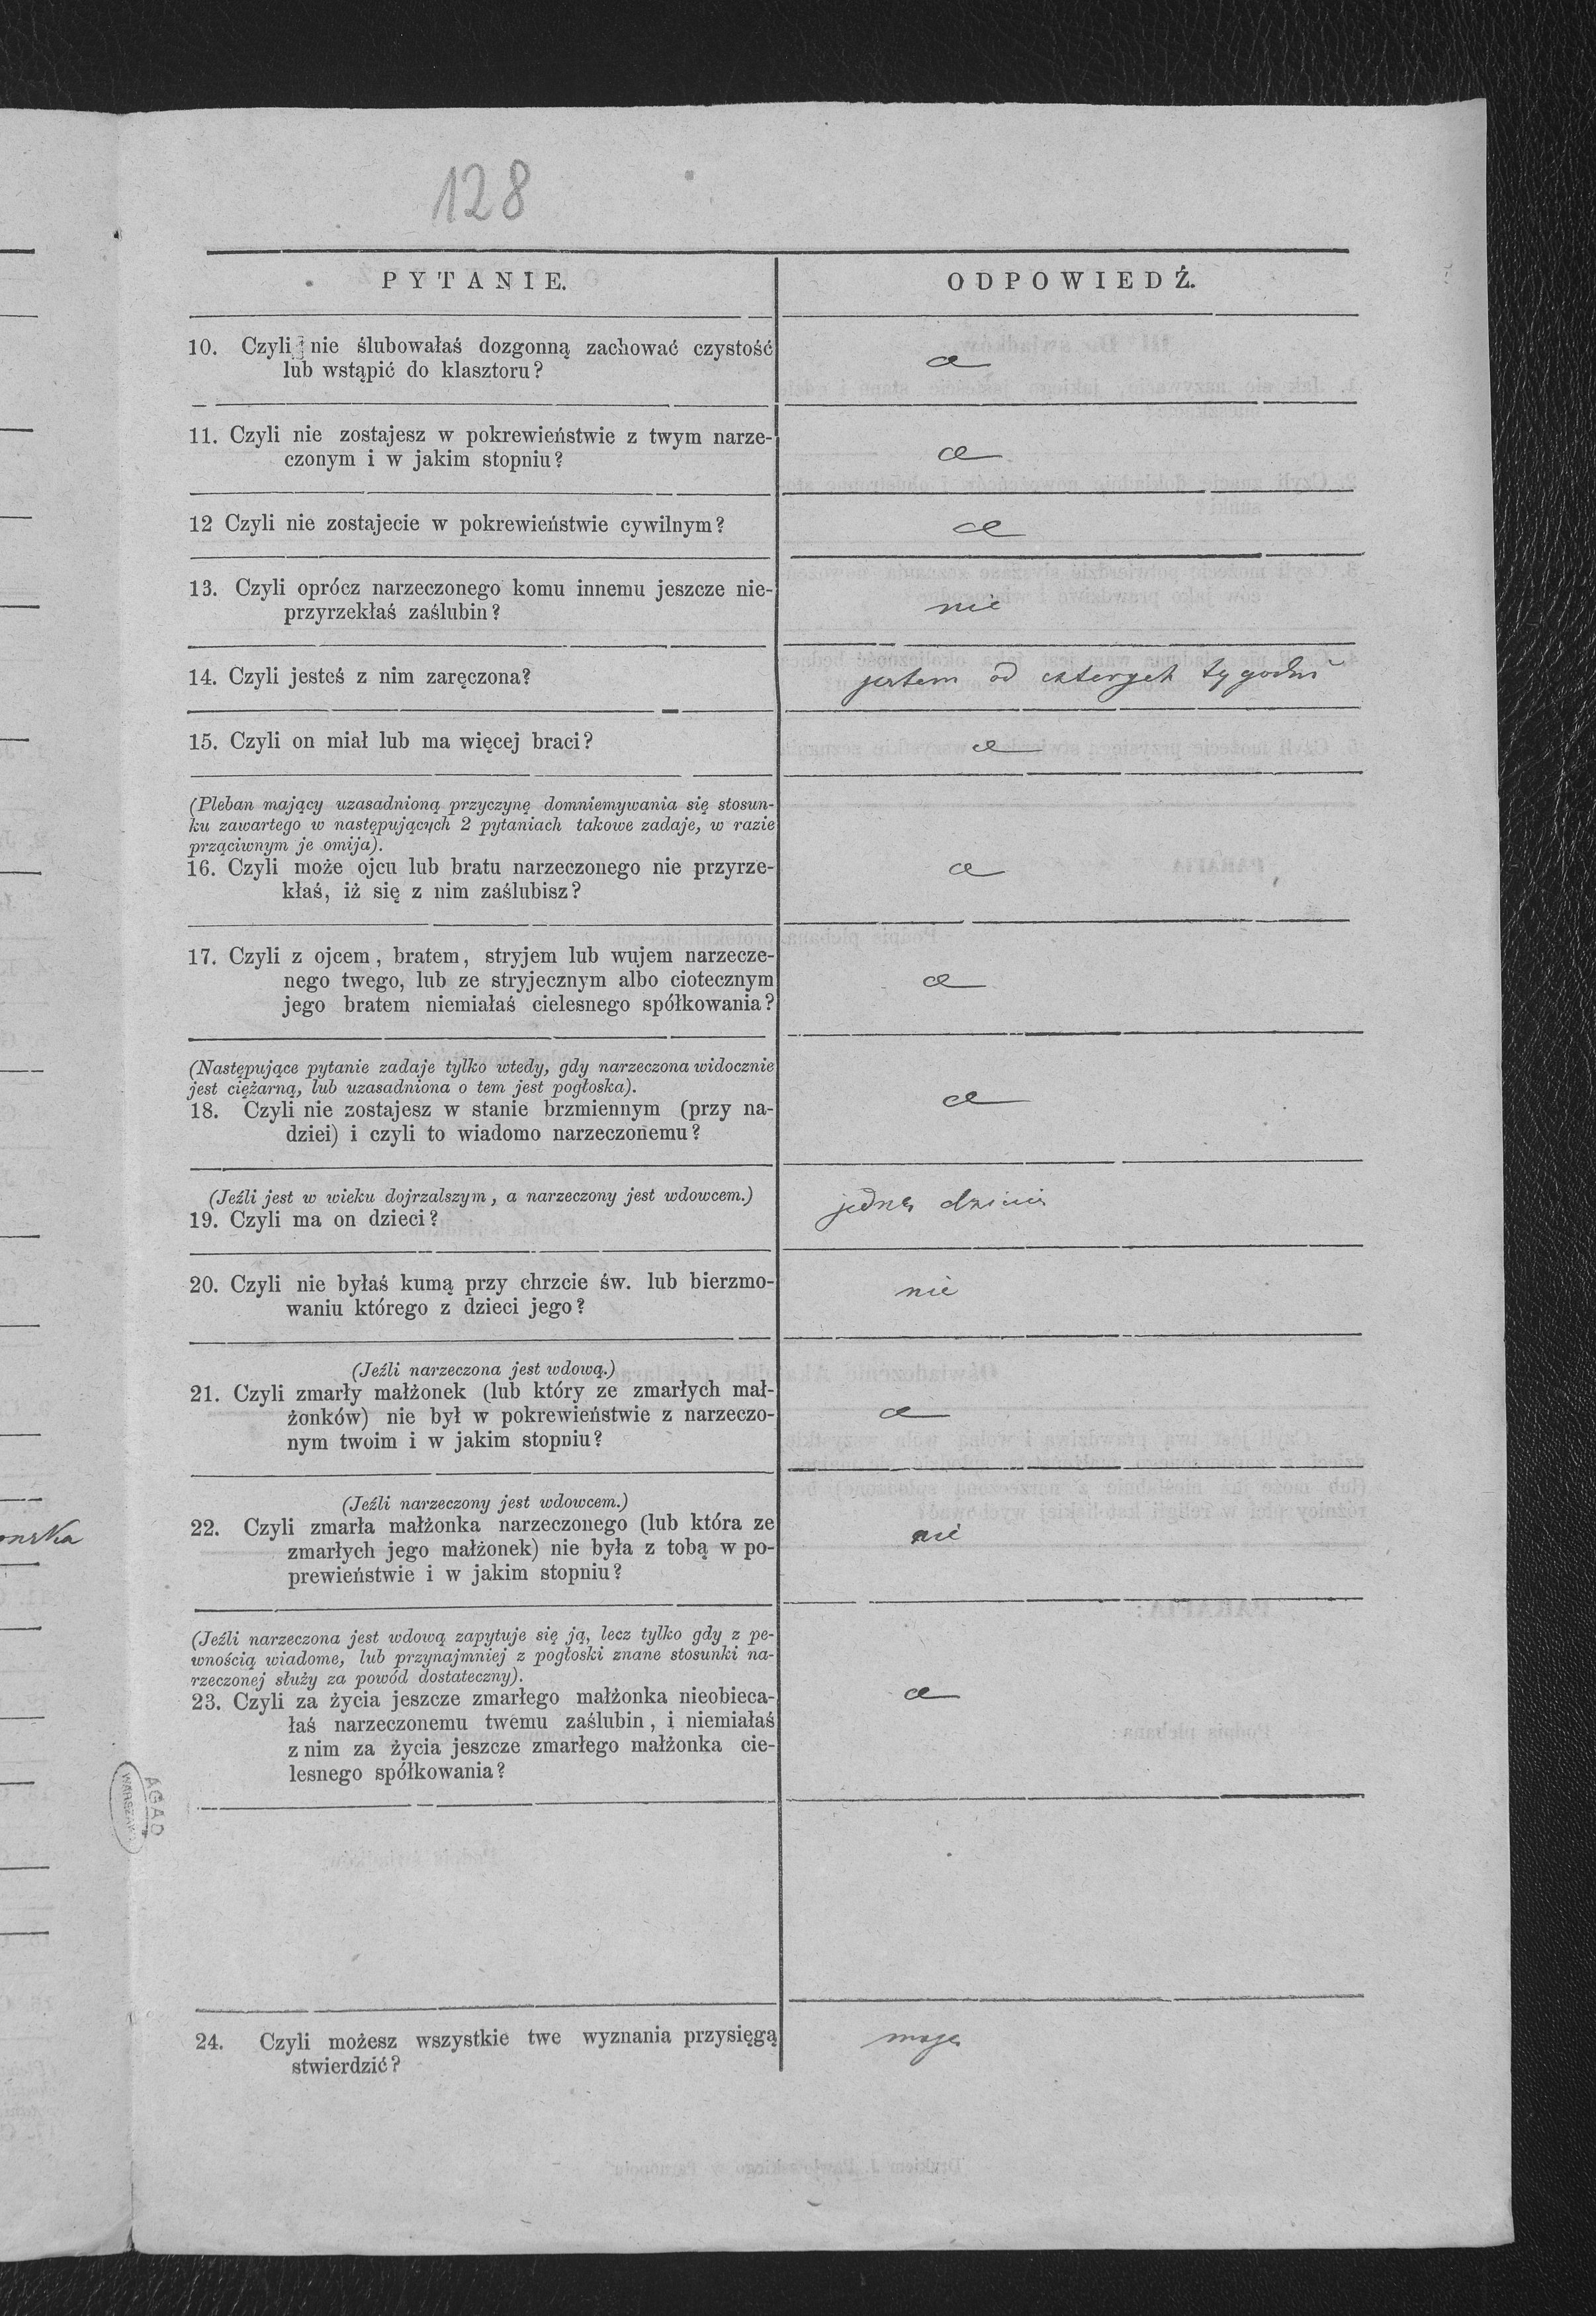 128
PYTANIE.
ODPOWIEDŹ.
10. Czyli nie ślubowałaś dozgonną zachować czystość
lub wstąpić do klasztoru?
11. Czyli nie zostajesz w pokrewieństwie z twym narze-
czonym i w jakim stopniu?
12 Czyli nie zostajecie w pokrewieństwie cywilnym?
13. Czyli oprócz narzeczonego komu innemu jeszcze nie-
przyrzekłaś zaślubin?
nie
14. Czyli jesteś z nim zaręczona?
jestem od czterech tygodni
15. Czyli on miał lub ma więcej braci?
(Pleban mający uzasadnioną przyczynę domniemywania się stosun-
ku zawartego w następujących 2 pytaniach takowe zadaje, w razie
prząciwnym je omija).
16. Czyli może ojcu lub bratu narzeczonego nie przyrze-
kłaś, iż się z nim zaślubisz?
17. Czyli z ojcem, bratem, stryjem lub wujem narzecze-
nego twego, lub ze stryjecznym albo ciotecznym
jego bratem niemiałaś cielesnego spółkowania?
(Następujące pytanie zadaje tylko wtedy, gdy narzeczona widocznie
jest ciężarną, lub uzasadniona o tem jest pogłoska).
18. Czyli nie zostajesz w stanie brzmiennym (przy na-
dziei) i czyli to wiadomo narzeczonemu?
(Jeźli jest w wieku dojrzalszym, a narzeczony jest wdowcem.)
19. Czyli ma on dzieci?
jedną dziecię
20. Czyli nie byłaś kumą przy chrzcie św. lub bierzmo-
waniu którego z dzieci jego?
nie
(Jeźli narzeczona jest wdową.)
21. Czyli zmarły małżonek (lub który ze zmarłych mał-
żonków) nie był w pokrewieństwie z narzeczo-
nym twoim i w jakim stopniu?
(Jeźli narzeczony jest wdowcem.)
22. Czyli zmarła małżonka narzeczonego (lub która ze
zmarłych jego małżonek) nie była z tobą w po-
prewieństwie i w jakim stopniu?
nie
(Jeźli narzeczona jest wdową zapytuje się ją, lecz tylko gdy z pe-
wnością wiadome, lub przynajmniej z pogłoski znane stosunki na-
rzeczonej służy za powód dostateczny).
23. Czyli za życia jeszcze zmarłego małżonka nieobieca-
łaś narzeczonemu twemu zaślubin, i niemiałaś
z nim za życia jeszcze zmarłego małżonka cie-
lesnego spółkowania?
24. Czyli możesz wszystkie twe wyznania przysięgą
stwierdzić?
mogę
AGAD
WARSZAWA